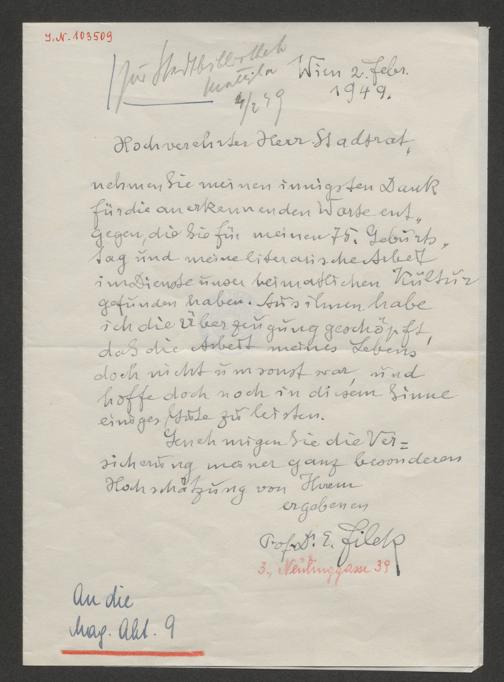 J.N. 103509
für Stadtbibliothek
Matejka
4/2 49
Wien 2. Febr.
1949.
Hochverehrter Herr Stadtrat,
nehmen Sie meinen innigsten Dank
für die anerkennenden Worte ent„
gegen, die Sie für meinen 75. Geburts„
tag und meine literarische Arbeit
im Dienste unser heimatlichen Kultur
gefunden haben. Aus ihnen habe
ich die Überzeugung geschöpft,
daß die Arbeit meines Lebens
doch nicht umsonst war, und
hoffe doch noch in diesem Sinne
einiges Gute zu leisten.
Genehmigen Sie die Ver=
sicherung meiner ganz besonderen
Hochschätzung von Ihrem
ergebenen
Prof. Dr. E. Jilek
3., Neulinggasse 39
An die
Mag. Abt. 9